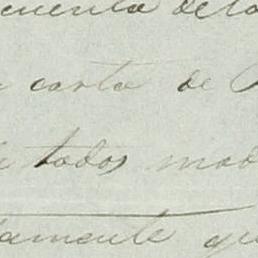 cuenta de lo
carta de
todos mod
tamente qu